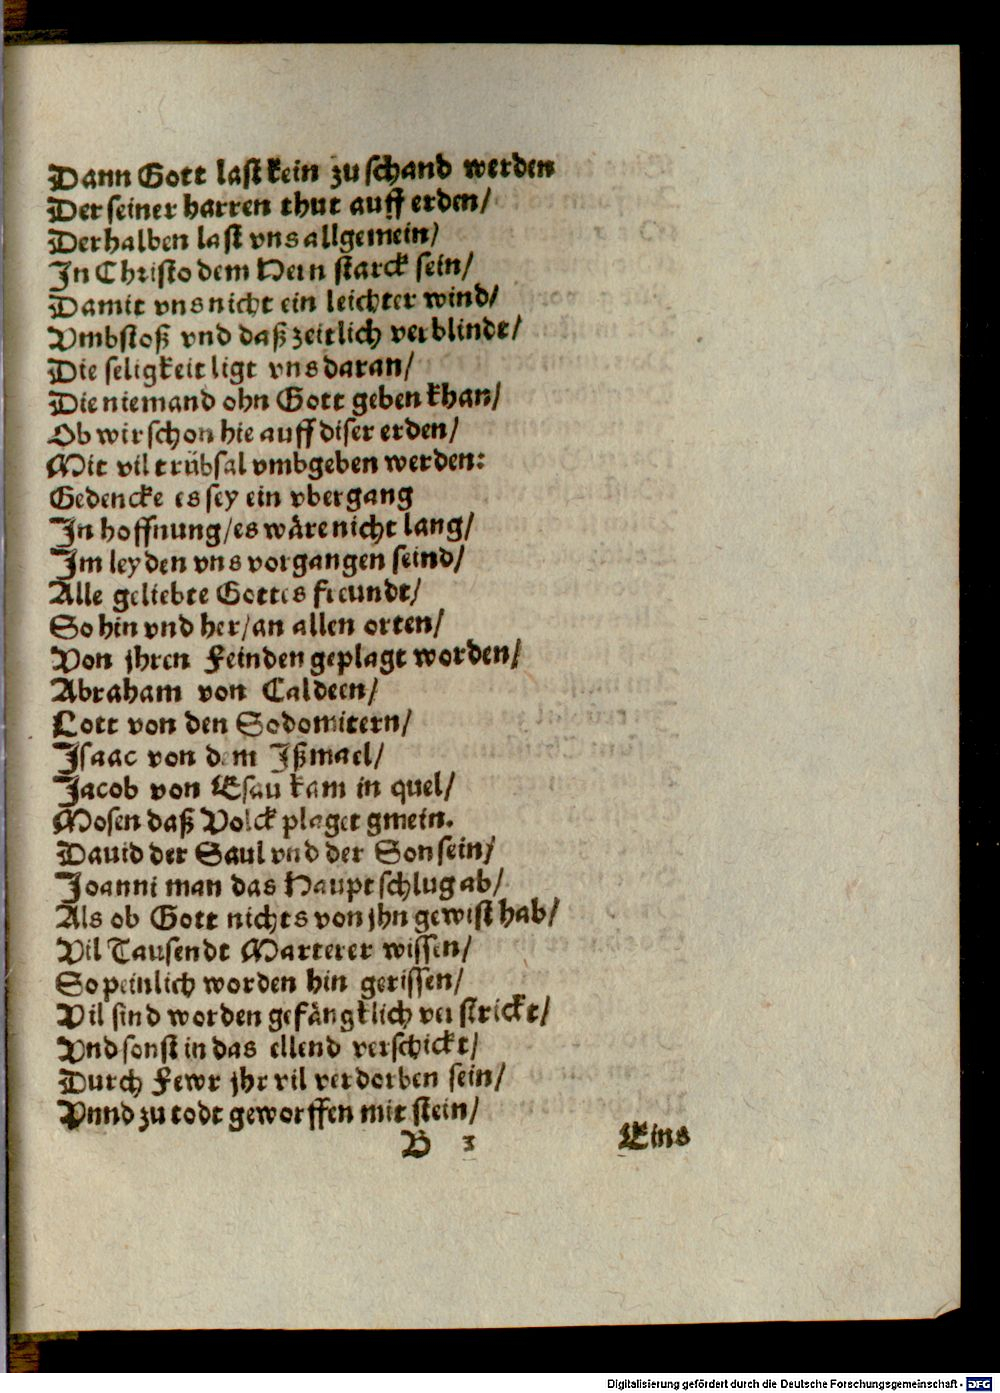 Dann Gott last kein zu schand werden
Der seiner harren thut auff erden/
Derhalben last vns allgemein/
In Christo dem Hern starck sein/
Damit vns nicht ein leichter wind/
Vmbstoß vnd daß zeitlich verblindt/
Die seligkeit ligt vns daran/
Die niemand ohn Gott geben khan/
Ob wir schon hie auff diser erden/
Mit vil trübsal vmbgeben werden:
Gedencke es sey ein vbergang
In hoffnung/es wäre nicht lang/
Im leyden vns vorgangen seind/
Alle geliebte Gottes freundt/
So hin vnd her/an allen orten/
Von jhren Feinden geplagt worden/
Abraham von Caldeen/
Lott von den Sodomitern/
Isaac von dem Ißmael/
Jacob von Esau kam in quel/
Mosen daß Volck plaget gmein.
Dauid der Saul vnd der Son sein/
Joanni man das Haupt schlug ab/
Als ob Gott nichts von jhn gewist hab/
Vil Tausendt Marterer wissen/
So peinlich worden hin gerissen/
Vil sind worden gefängklich verstrickt/
Vnd sonst in das ellend verschickt/
Durch Fewr jhr vil verdorben sein/
Vnnd zu todt geworffen mit stein/
B 3 Eins
Digitalisierung gefördert durch die Deutsche Forschungsgemeinschaft - DFG